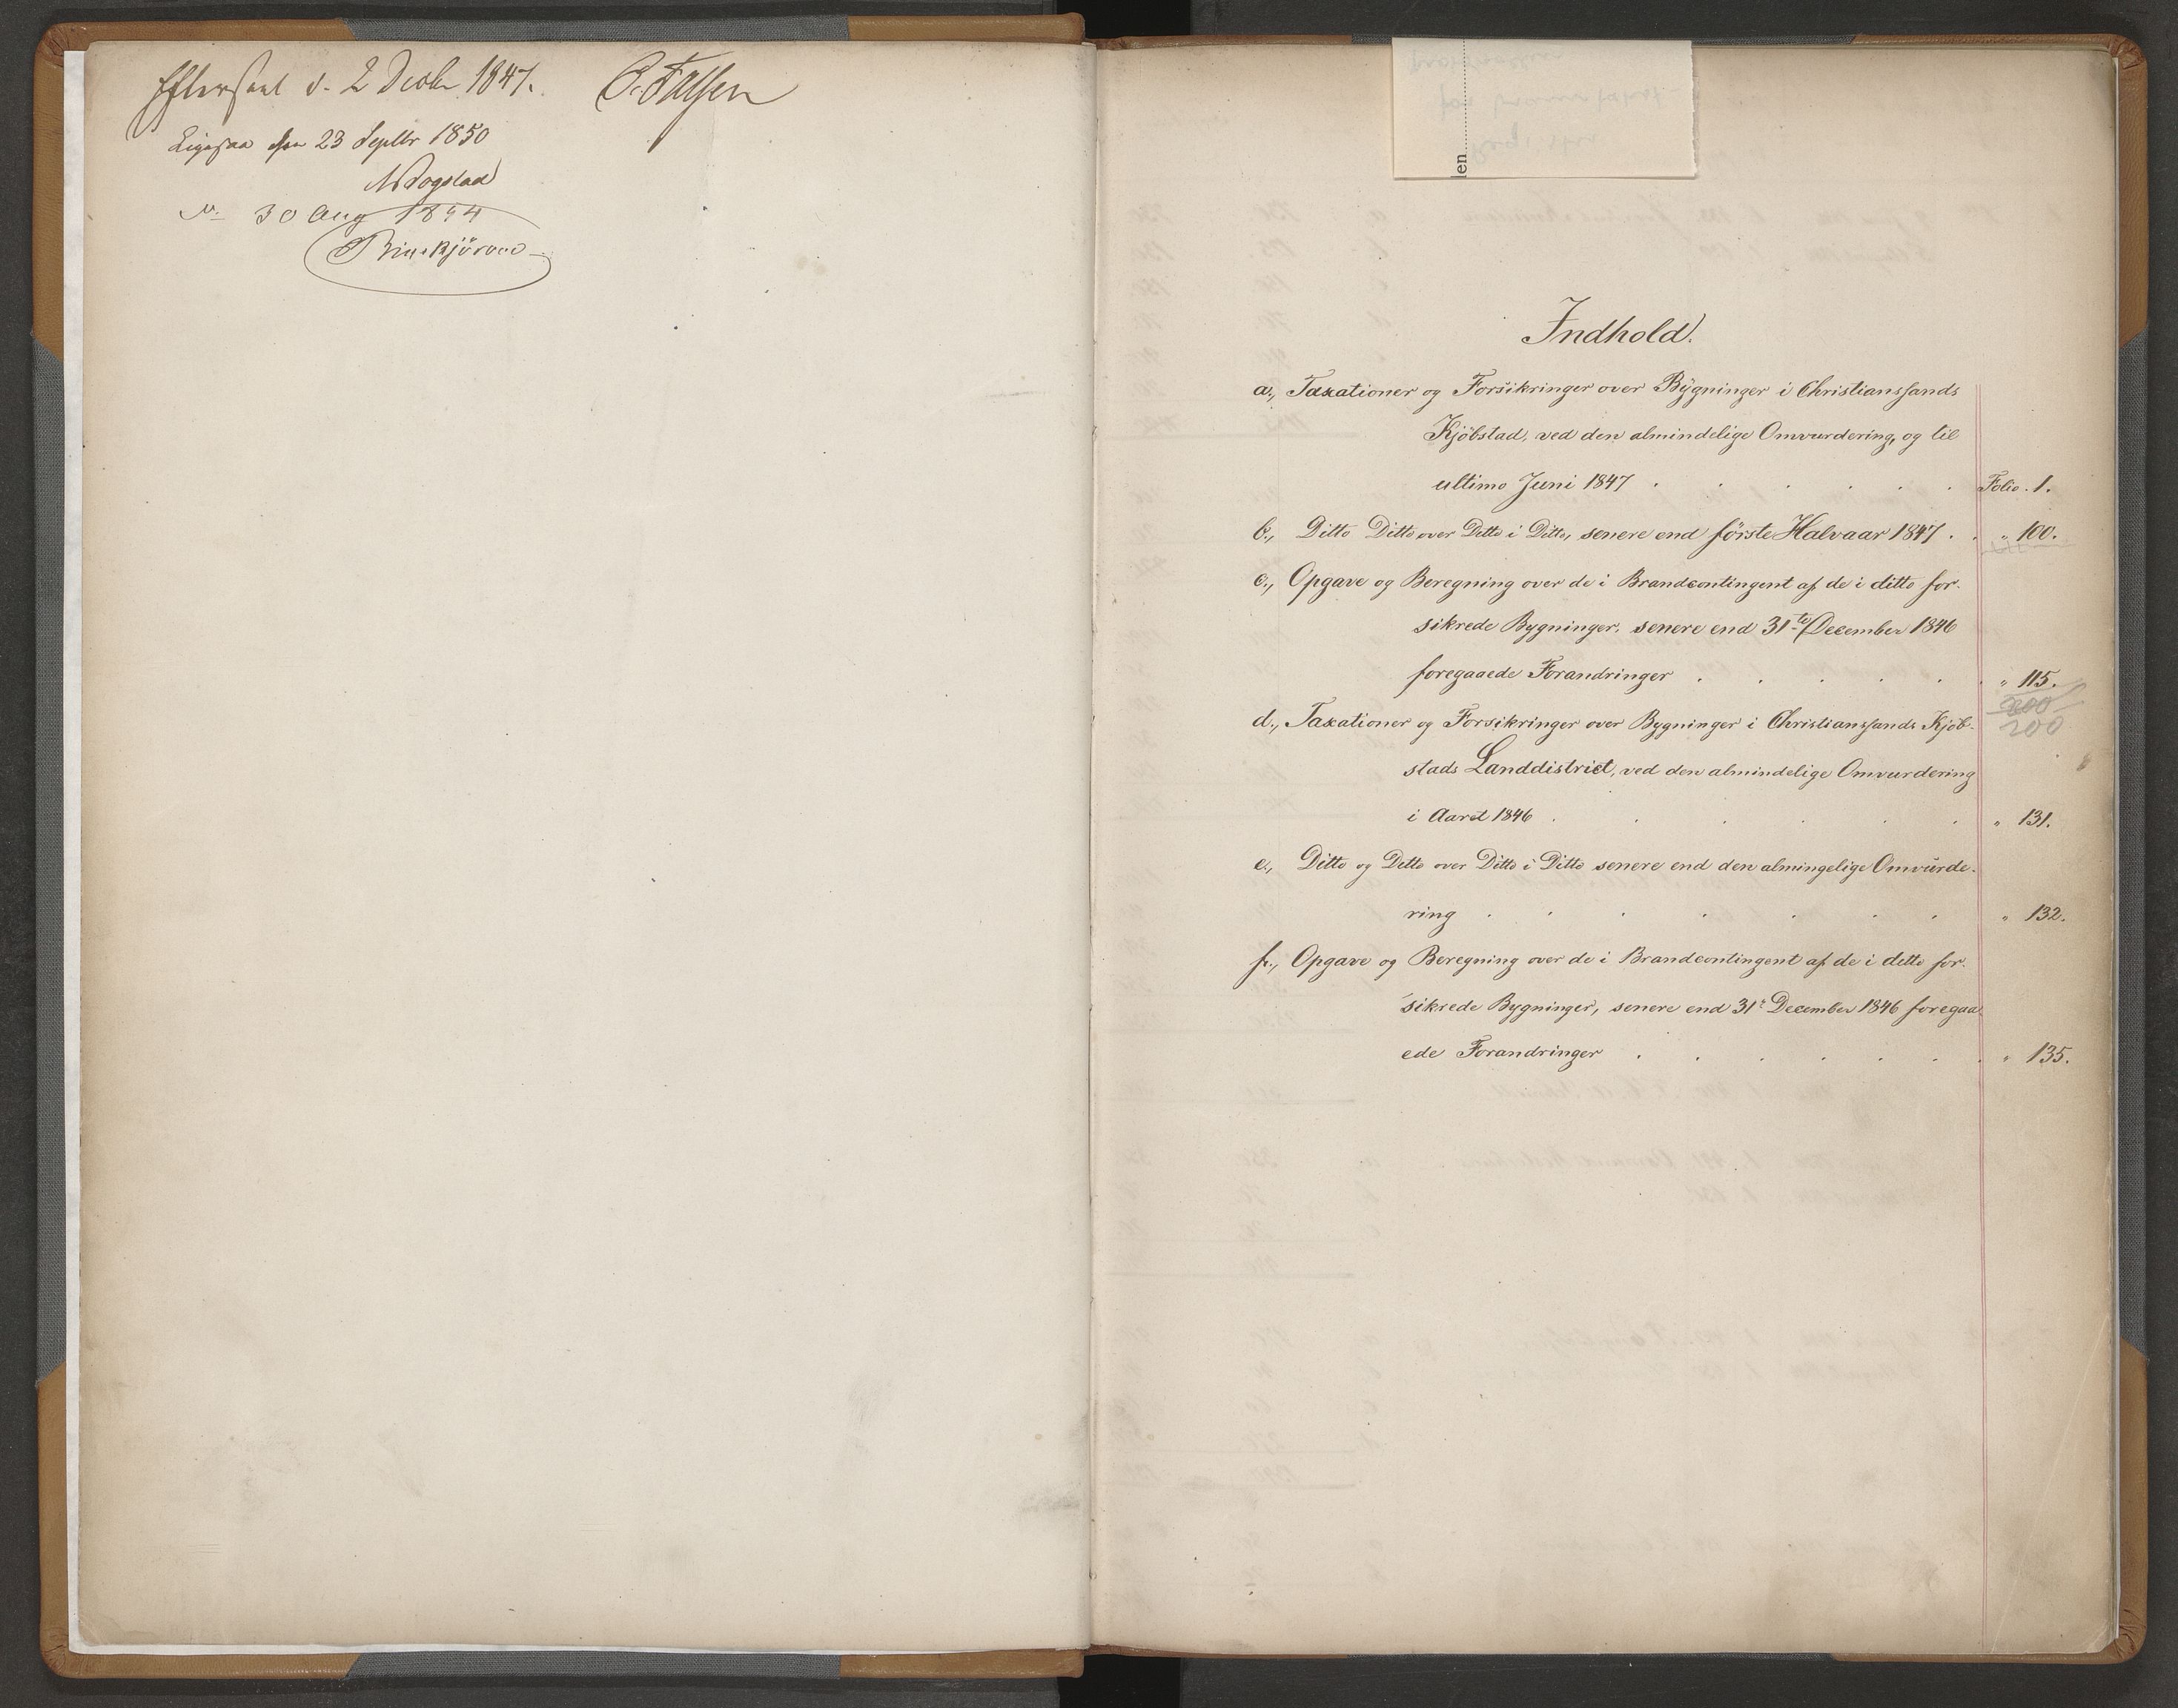 Efterseet d. 2 Decbr 1847. C. Falsen
Ligesaa den 23 Septbr 1850
NSogstad
30 Aug 1854
Indhold.
a., Taxationer og Forsikringer over Bygninger i Christianssands
Kjöbstad, ved den almindelige Omvurdering, og til
ultimo Juni 1847 . . . . . . Folio. 1.
b., Ditto Ditto over Ditto i Ditto, senere end förste Halvaar 1847 . . " 100.
c., Opgave og Beregning over de i Brandcontingent af de i ditto for-
sikrede Bygninger, senere end 31te December 1846
foregaaede Forandringer . . . . . . " 115.
200
200
d., Taxationer og Forsikringer over Bygninger i Christianssands Kjöb-
stads Landdistrict, ved den almindelige Omvurdering
i Aaret 1846 . . . . . . " 131.
e., Ditto og Ditto over Ditto i Ditto senere end den almingelige Omvurde-
ring . . . . . . . " 132.
f., Opgave og Beregning over de i Brandcontingent af de i ditto for-
sikrede Bygninger, senere end 31te December 1846 foregaa
ede Forandringer . . . . . . . " 135.
len